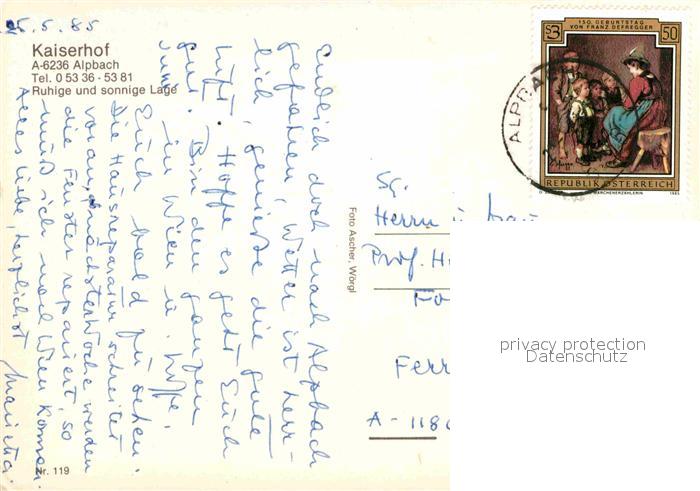 25.5.85
Kaiserhof
A-6236 Alpbach
Tel. 0 53 36 - 53 81
Ruhige und sonnige Lage
Endlich doch nach Alpbach
gefahren, Wetter ist herr-
lich, genieße die gute
Luft. Hoffe es geht Euch
gut. Bin den ganzen
Juni in Wien u. hoffe,
Euch bald zu sehen.
Die Hausreparatur schreitet
voran, nächste Woche werden
die Fenster repariert, so
muß ich nach Wien kommen.
Alles Liebe, herzlichst
Nr. 119
Foto Ascher, Wörgl
150. GEBURTSTAG
VON FRANZ DEFREGGER
S3 50
REPUBLIK ÖSTERREICH
MÄRCHENERZÄHLERIN 1985
ALPBA
Herrn u.
Prof. H
Ferr
A - 118
privacy protection
Datenschutz